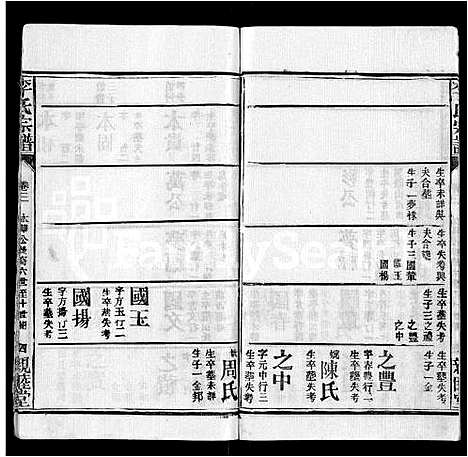 生卒未詳與
夫合塟
生子一夢椽
生卒失考與
夫合塟
生子三國輦
國玉
國楊
生卒塟失考
生子三之禮
之豐
之中
生卒塟失考
生子一金
之豐
字春興行一
生卒塟失考
娶陳氏
生卒塟失考
之中
字元中行三
生卒塟失考
李氏宗譜
卷三
四
親睦堂
國玉
字方玉行二
生卒塟失考
國揚
字方揚行三
生卒塟失考
周氏
生卒塟未詳
生子一金邦